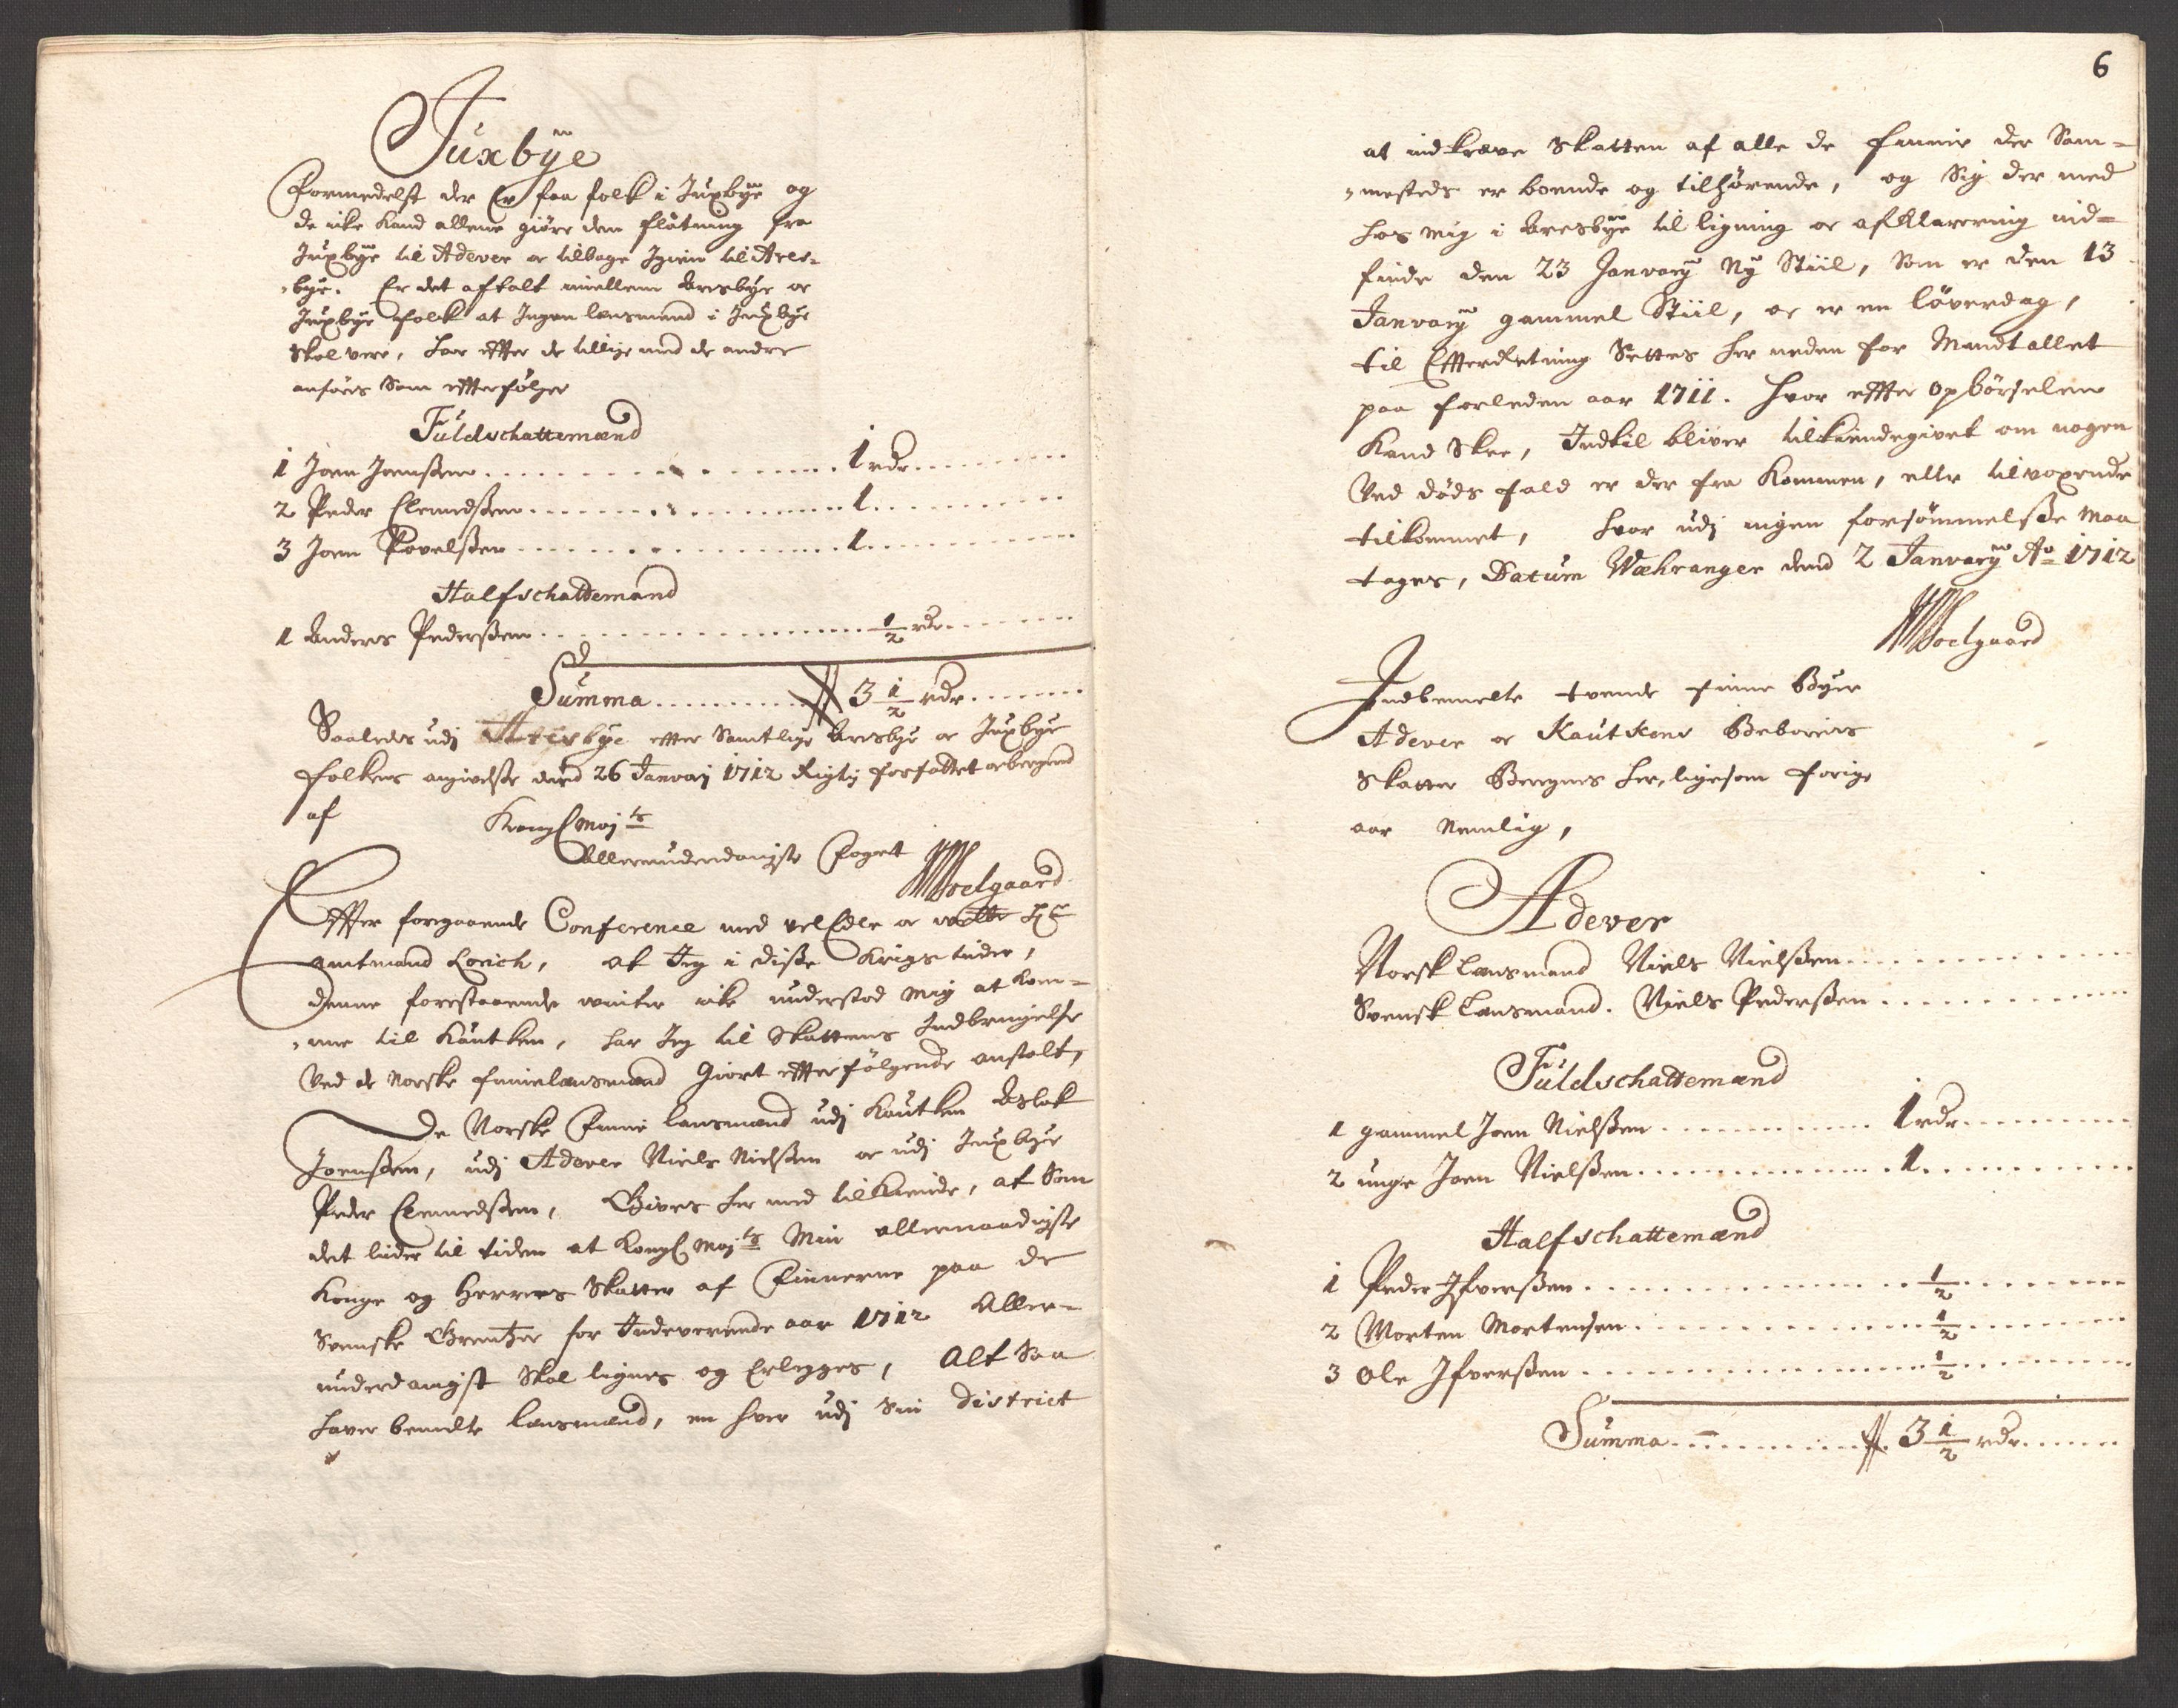 Juxbÿe
Formedelst der Er faa folk i Juxbÿe og
de icke kand allene giöre den flötning fra
Juxbÿe til Adever oc tilbage Igien til Ares-
bÿe. Er det aftalt imellem Aresbÿe oc
Juxbÿe folk at Ingen lensmand i Juxbÿe
skal vere, har effter de tillige med de andre
anföris som effterfölger
Fuldschattemænd
1 Joen Joensßen 1 rdr
2 Peder Clemedsßen 1
3 Joen Povelsßen 1
Halfschattemænd
1 Anders Pedersßen 1/2 rdr
Summa 3 1/2 rdr
Saaledes udj Aresbÿe effter samtlige Aresbÿe oc Juxbÿe
folkes angivelse dend 26 Januarj 1712 Rigtig forfattet oc beregned
af Kongl May ts
Allerunderdanigste Foget
Soelgaard
Effter foregaaende Conference med velEdle oc Hr
amtmand Lorich, at Jeg i disße Krigs tider,
denne forestaaende winter icke understod mig at kom-
me til Kautken, har Jeg til Skattens Indbringelse
Ved de Norske finnelensmænd Giort effterfölgende anstalt,
De Norske Finne lensmænd udj Kautken Aslak
Joensßen, udj Adever Niels Nielsßen oc udj Juxbÿe
Peder Clemmedsßen, Gives her med tilkiende, at Som
det lider til tiden at Kongl May ts Min allernaadigste
Konge og Herres Skatter af Finnerne paa de
Svenske Grentzer for Indeverende aar 1712 Aller-
underdanigst skal lignes og Erlegges, Alt saa
haver bemelte lensmænd, en hver udj sin district
6
at indkræve Skatten af alle de finner der Sam-
mesteds er boende og tilhörende, og Sig der med
hos mig i Aresbÿe til ligning oc afklarering ind-
finde den 23 Januarÿ Nÿ Stiil, som er den 13
Januarÿ gammel Stiil, oc er en löverdag,
til Effterretning Settes her neden for Mandtallet
paa forleden aar 1711. hvor effter opbörselen
Kand skee, Indtil bliver tilkiendegivet om nogen
Ved döds fald er der fra kommen, eller tilvoxende
tilkommet, hvor udj ingen forsömmelsße maa
tages, Datum Wæhranger dend 2 Januarÿ Ao 1712
Soelgaard
Indbemelte tvende finne Byer
Adever oc Kautkens Beboeris
Skatter Beregnes her, ligesom forige
aar Nemlig,
Adever
Norsk lensmand Niels Nielsßen
Svensk lensmand. Niels Pedersßen
Fuldschattemænd
1 gammel Joen Nielsßen 1 rdr
2 unge Joen Nielsßen 1
Halfschattemænd
1 Peder Ifversßen 1/2
2 Morten Mortensen 1/2
3 Ole Ifversßen 1/2
Summa 3 1/2 rdr